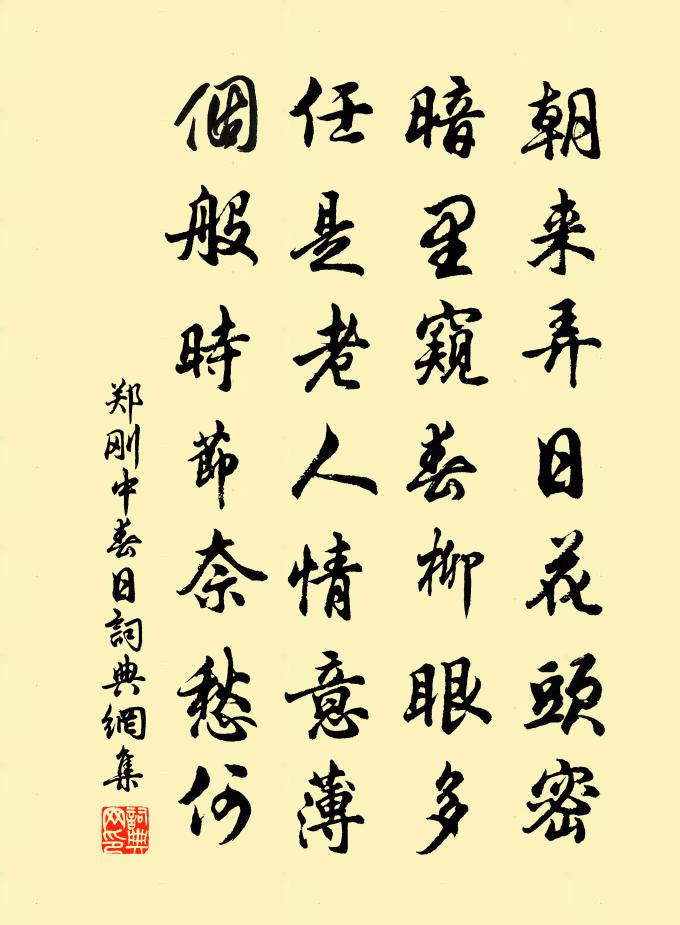 朝来弄日花頭密
暗里窺春柳眼多
任是老人情意薄
個般時節奈愁何
郑刚中春日詞典網集
詞典网印